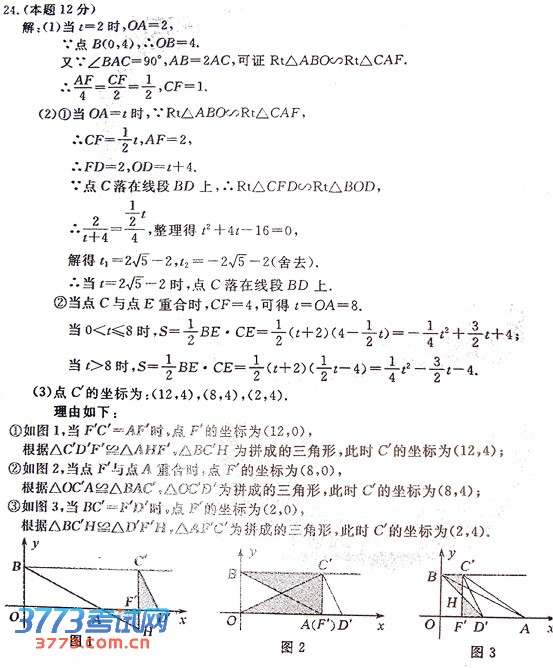 24.(本题12分)
解:(1)当t=2时,OA=2,
∵点B(0,4),∴OB=4.
又∵∠BAC=90°,AB=2AC,可证Rt△ABO∽Rt△CAF.
∴AF/4=CF/2=1/2,CF=1.
(2)①当OA=t时,∵Rt△ABO∽Rt△CAF,
∴CF=1/2t,AF=2,
∴FD=2,OD=t+4.
∵点C落在线段BD上,∴Rt△CFD∽Rt△BOD,
∴2/(t+4)=(1/2t)/4,整理得t²+4t-16=0,
解得t₁=2√5-2,t₂=-2√5-2(舍去).
∴当t=2√5-2时,点C落在线段BD上.
②当点C与点E重合时,CF=4,可得t=OA=8.
当0<t≤8时,S=1/2BE·CE=1/2(t+2)(4-1/2t)=-1/4t²+3/2t+4;
当t>8时,S=1/2BE·CE=1/2(t+2)(1/2t-4)=1/4t²-3/2t-4.
(3)点C′的坐标为:(12,4),(8,4),(2,4).
理由如下:
①如图1,当F′C′=AF′时,点F′的坐标为(12,0),
根据△C′D′F′≌△AHF′,△BC′H为拼成的三角形,此时C′的坐标为(12,4);
②如图2,当点F′与点A重合时,点F′的坐标为(8,0),
根据△OC′A≌△BAC′,△OC′D′为拼成的三角形,此时C′的坐标为(8,4);
③如图3,当BC′=F′D′时,点F′的坐标为(2,0),
根据△BC′H≌△D′F′H,△AF′C′为拼成的三角形,此时C′的坐标为(2,4).
y B C′ F′ O A D′ x H
图1
y B C′ O A(F′) D′ x
图2
y B C′ H O F′ D′ A x
图3
3773考试网
3773.com.cn